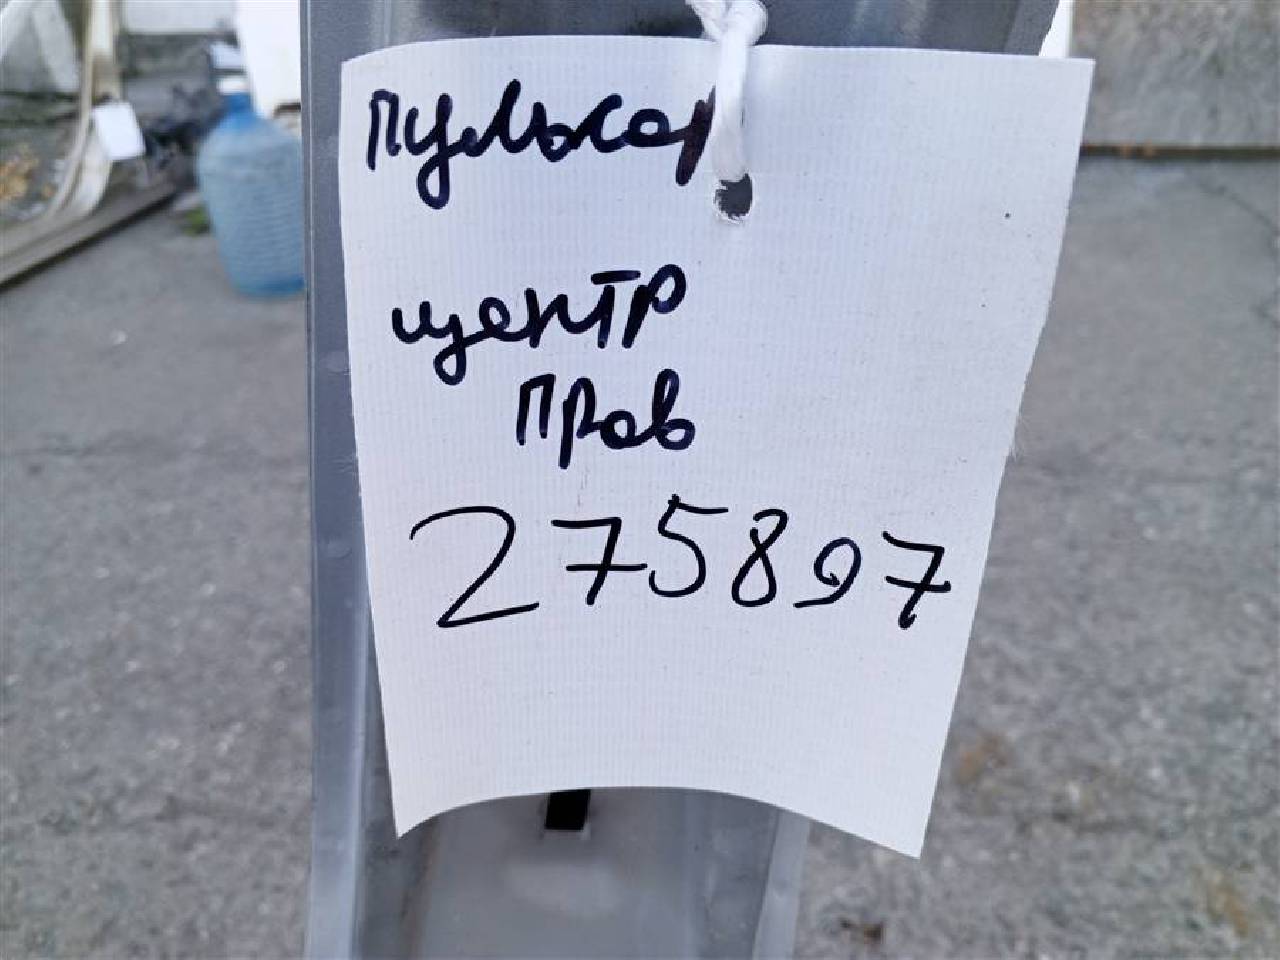 пульсар
центр
прав
275897